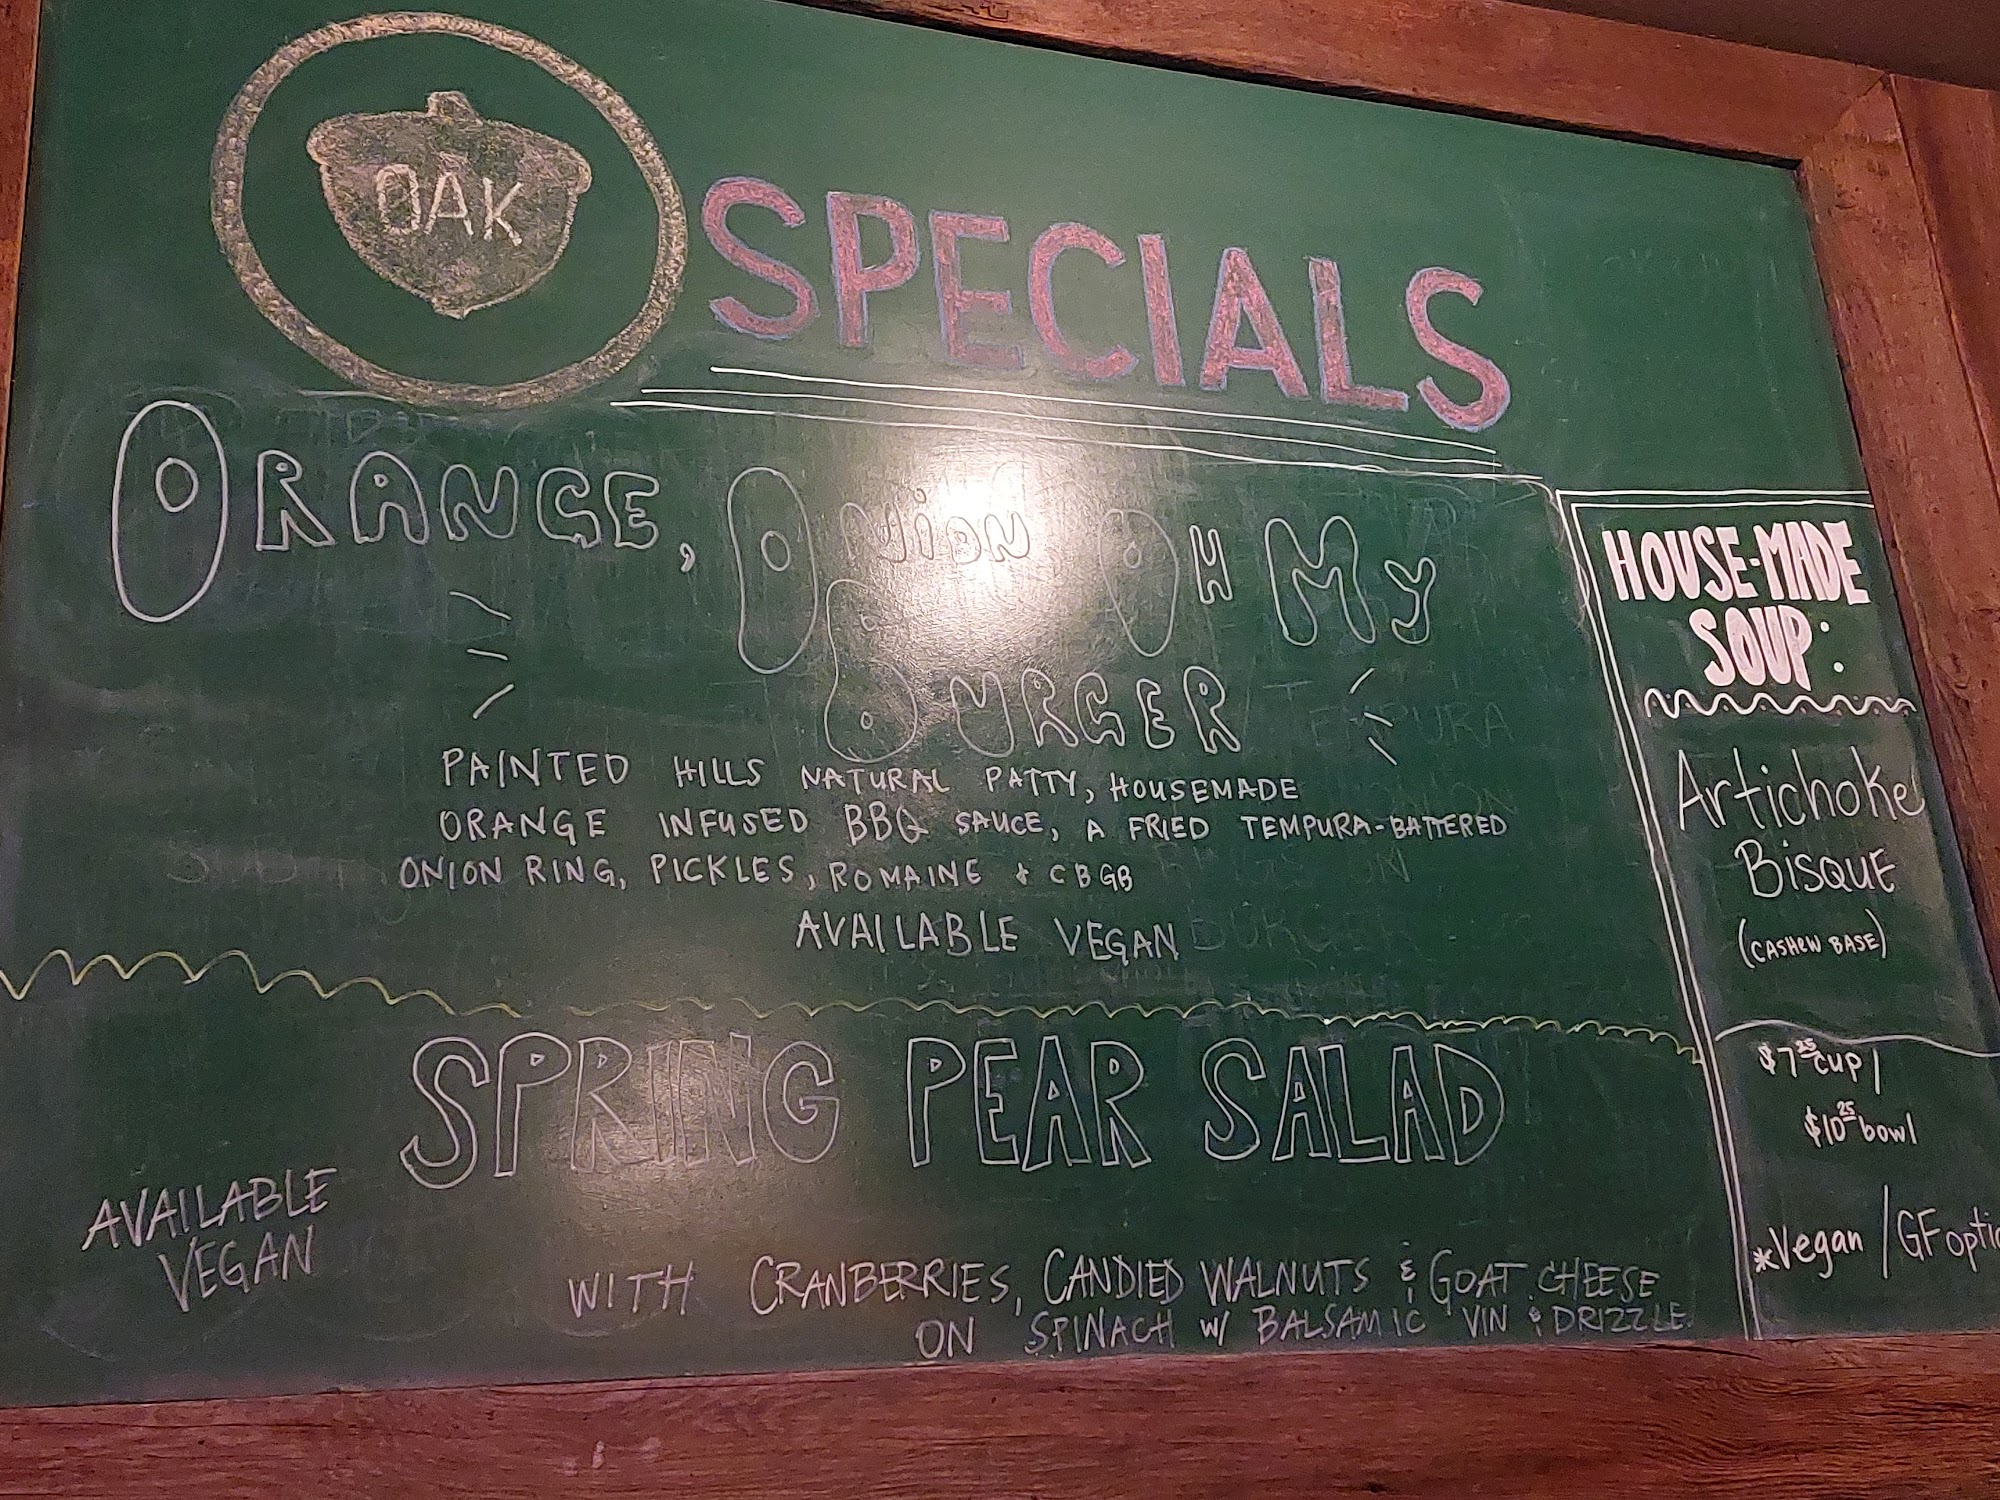 OAK
SPECIALS
ORANGE, ONION OH MY
BURGER
PAINTED HILLS NATURAL PATTY, HOUSEMADE
ORANGE INFUSED BBQ SAUCE, A FRIED TEMPURA-BATTERED
ONION RING, PICKLES, ROMAINE & CBGB
AVAILABLE VEGAN
SPRING PEAR SALAD
AVAILABLE
VEGAN
WITH CRANBERRIES, CANDIED WALNUTS & GOAT CHEESE
ON SPINACH W/ BALSAMIC VIN & DRIZZLE
HOUSE-MADE
SOUP:
Artichoke
BISQUE
(CASHEW BASE)
$7.25 cup /
$10.25 bowl
*Vegan / GF optio